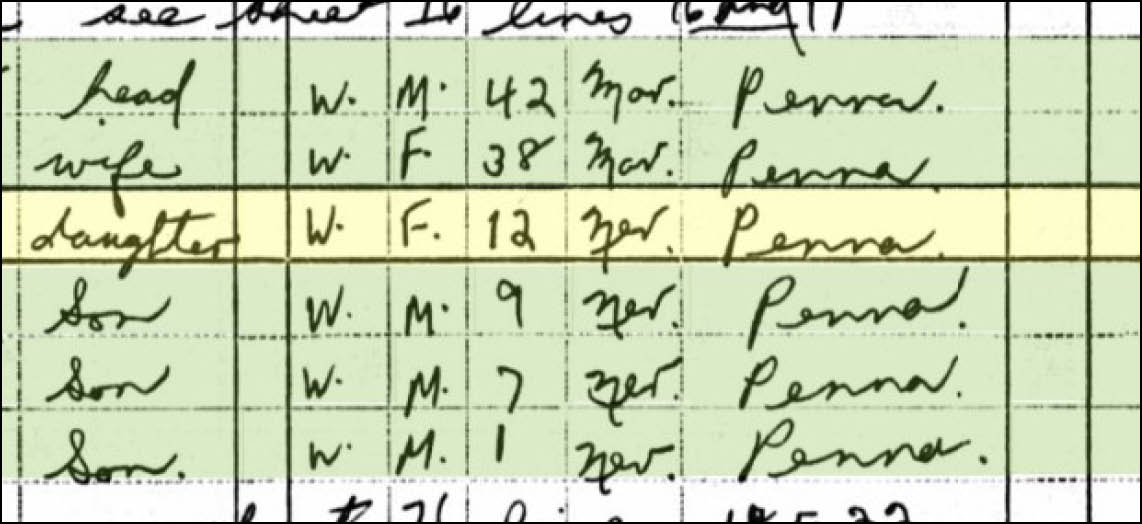 see sheet 16 lines 16 and 17
head W. M. 42 Mar. Penna.
wife W. F. 38 Mar. Penna.
daughter W. F. 12 Nev. Penna.
Son W. M. 9 Nev. Penna.
Son W. M. 7 Nev. Penna.
Son. W. M. 1 Nev. Penna.